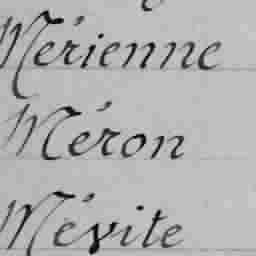 Mérienne
Méron
Mévite